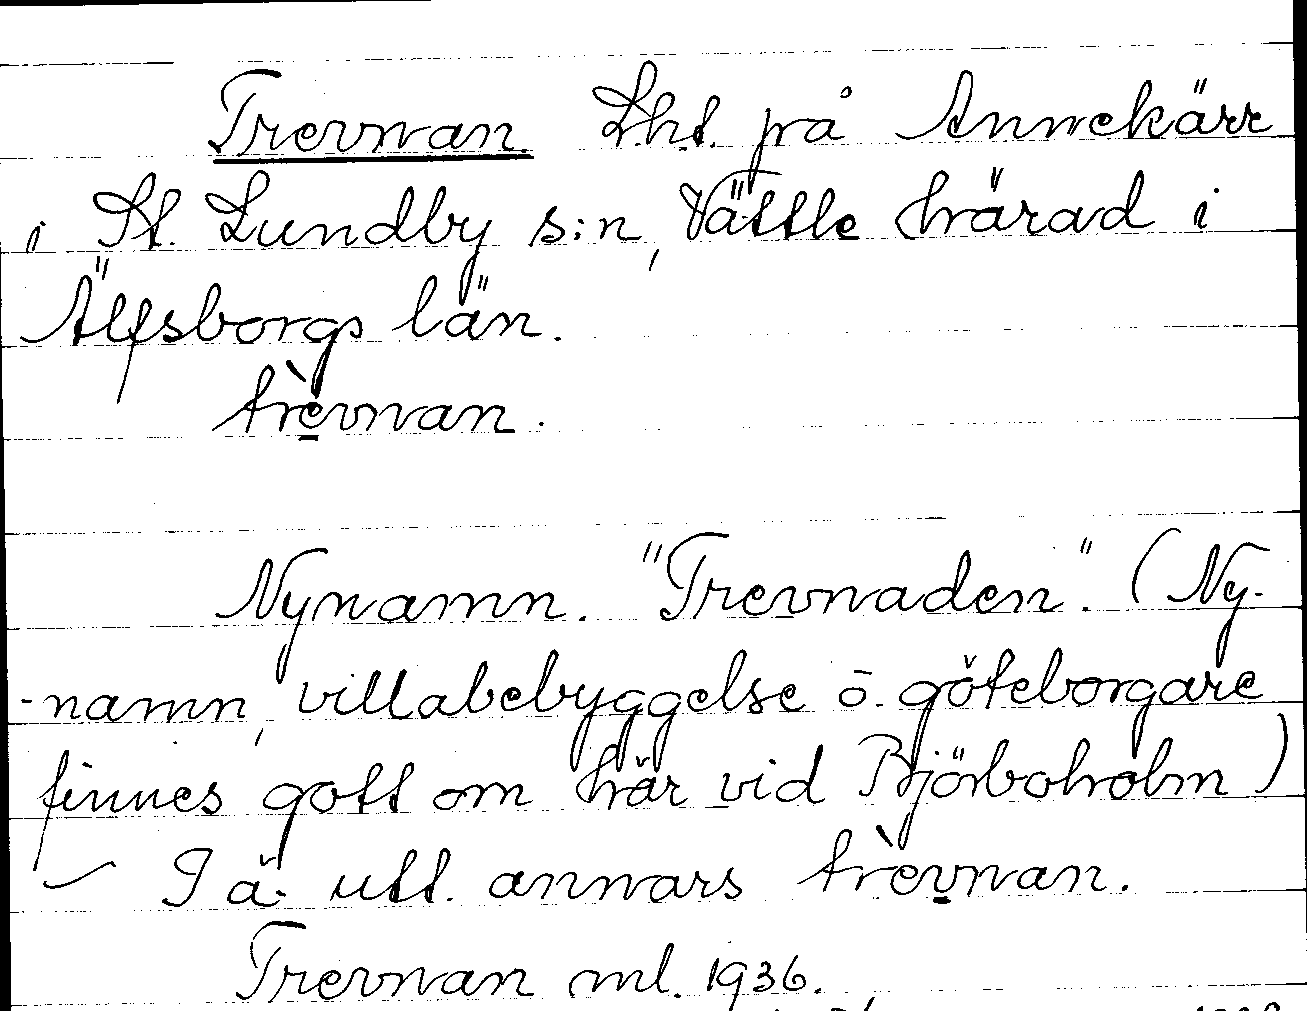 Trevnan. Lht. på Annekärr
i St. Lundby s:n, Vättle härad i
Älfsborgs län.
trèvnan.
Nynamn. "Trevnaden". (Ny-
-namn, villabebyggelse o. göteborgare
finnes gott om här vid Björboholm)
I ä. utt. annars trèvnan.
Trevnan ml. 1936.